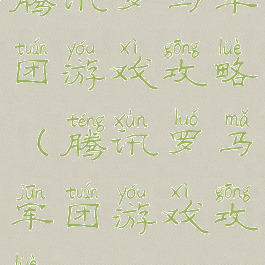 腾讯罗马军
tuán yóu xì gōng lüè
团游戏攻略
téng xùn luó mǎ
(腾讯罗马
jūn tuán yóu xì gōng
军团游戏攻
lüè